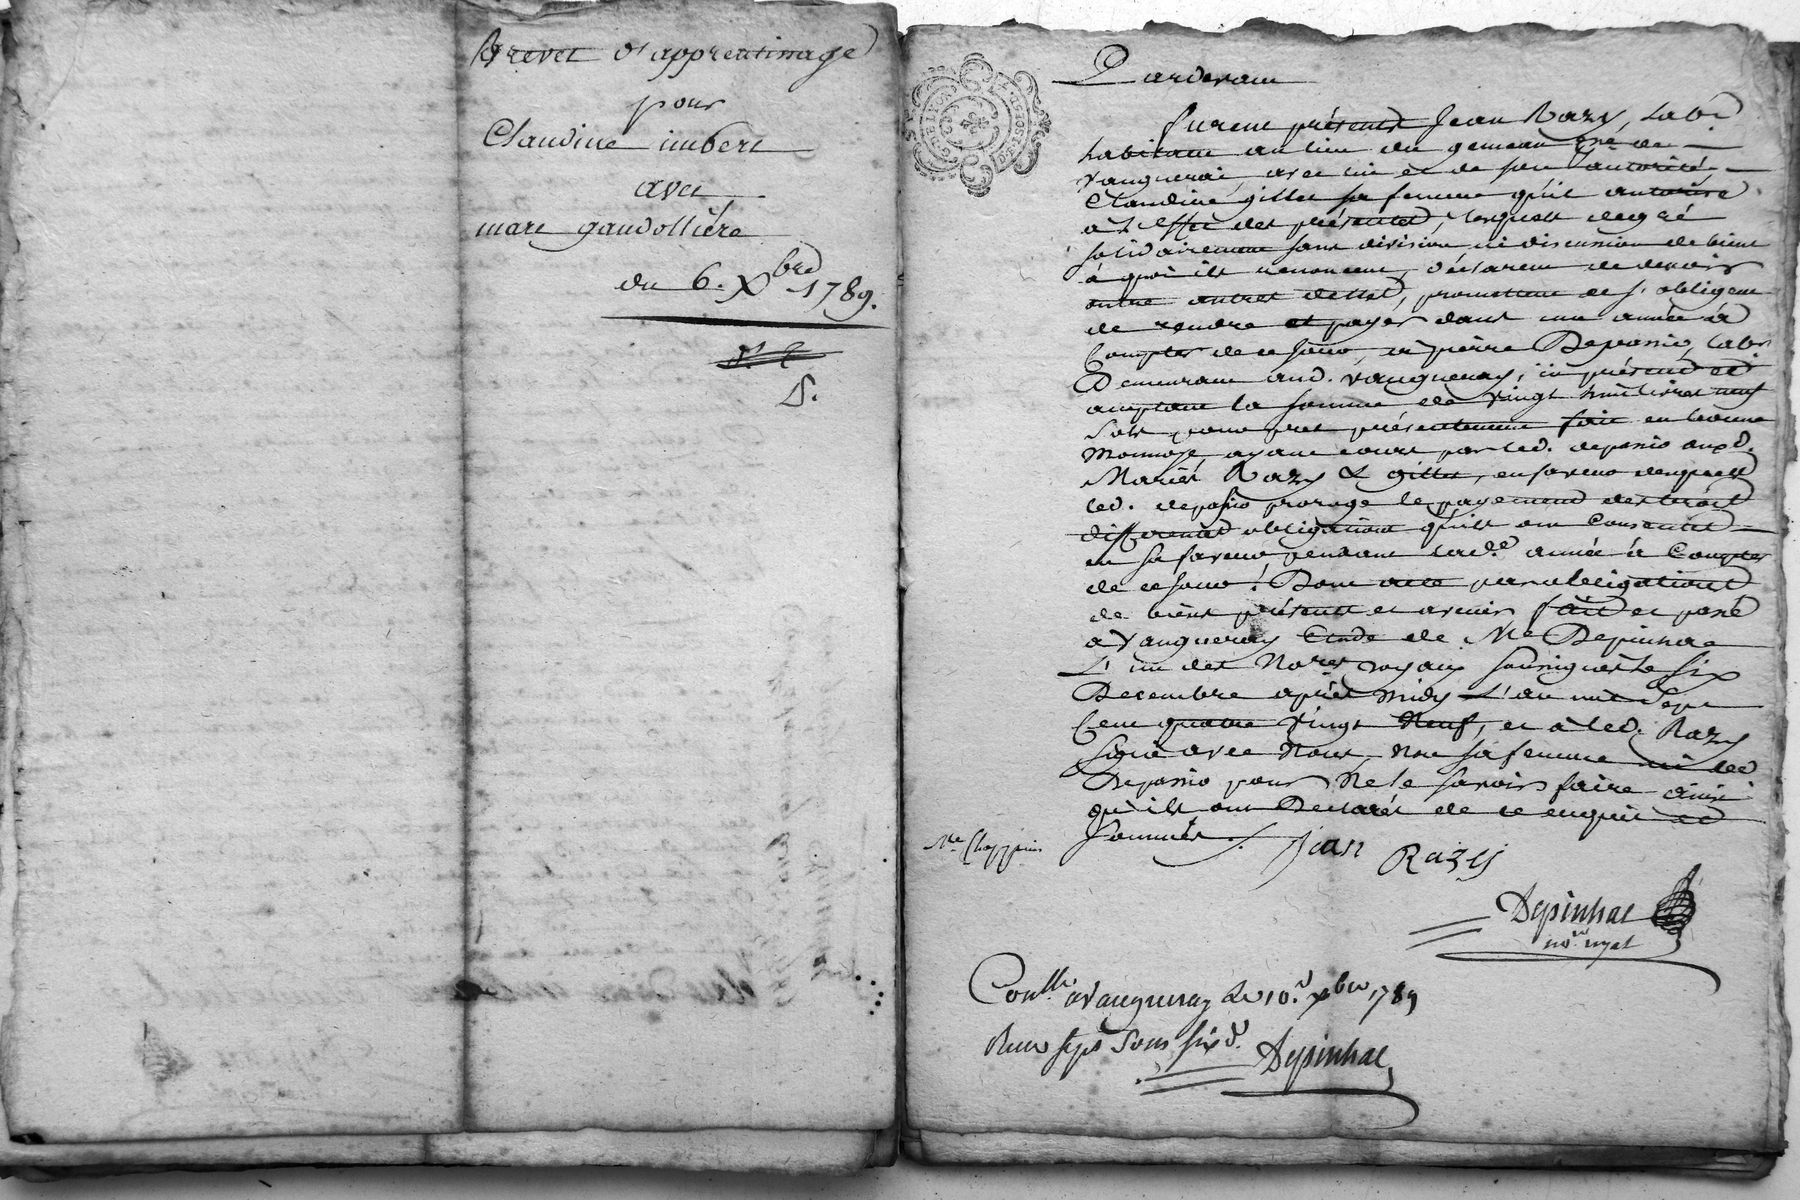 Brevet d'apprentissage
pour
Claudine imbert
avec
marc gaudollière
du 6. Xbre 1789.
S.
Pardevant
furent présents Jean Razy, lab.r
habitant au lieu du gemeau de
Vaugneraï, avec lui et de son autorité,
Claudine gillet sa femme qu'il autorise
à l'effet des présentes, lesquels de gré
solidairement sans division ni discussion de biens
à quoi ils renoncent, déclarent de devoir
outre autres dettes, promettent et s'obligent
de rendre et payer dans une année à
Compter de ce jour, à pierre Depassio, lab.r
Demeurant aud. Vaugneray, ici présent et
acceptant la somme de vingt huit livres neuf
sols pour pret présentement fait en bonne
Monnoye ayant cours par led. depassio auxd.
Mariés Razy & gillet, en faveur desquels
led. depassio proroge le payement des trois
differentes obligations qu'ils ont Consenties
en sa faveur pendant lad.e année à Compter
de ce jour! Dont acte par obligations
de biens présents et avenir fait et passé
à Vaugneray Etude de Me Depinhac
L'un des No.res royaux soussignés Le six
Decembre après midy L'an mil sept
Cent quatre vingt Neuf, et a led. Razy
signé avec Nous, non sa femme ni led.
Depassio pour Ne le savoir faire ainsi
qu'ils ont Declaré de ce enquis et
sommés.
Jean Razy
Depinhac
no.re royal
Con.llé à Vaugneray Le 10.e xbre 1789
Reçu sept sous six d.
Depinhac